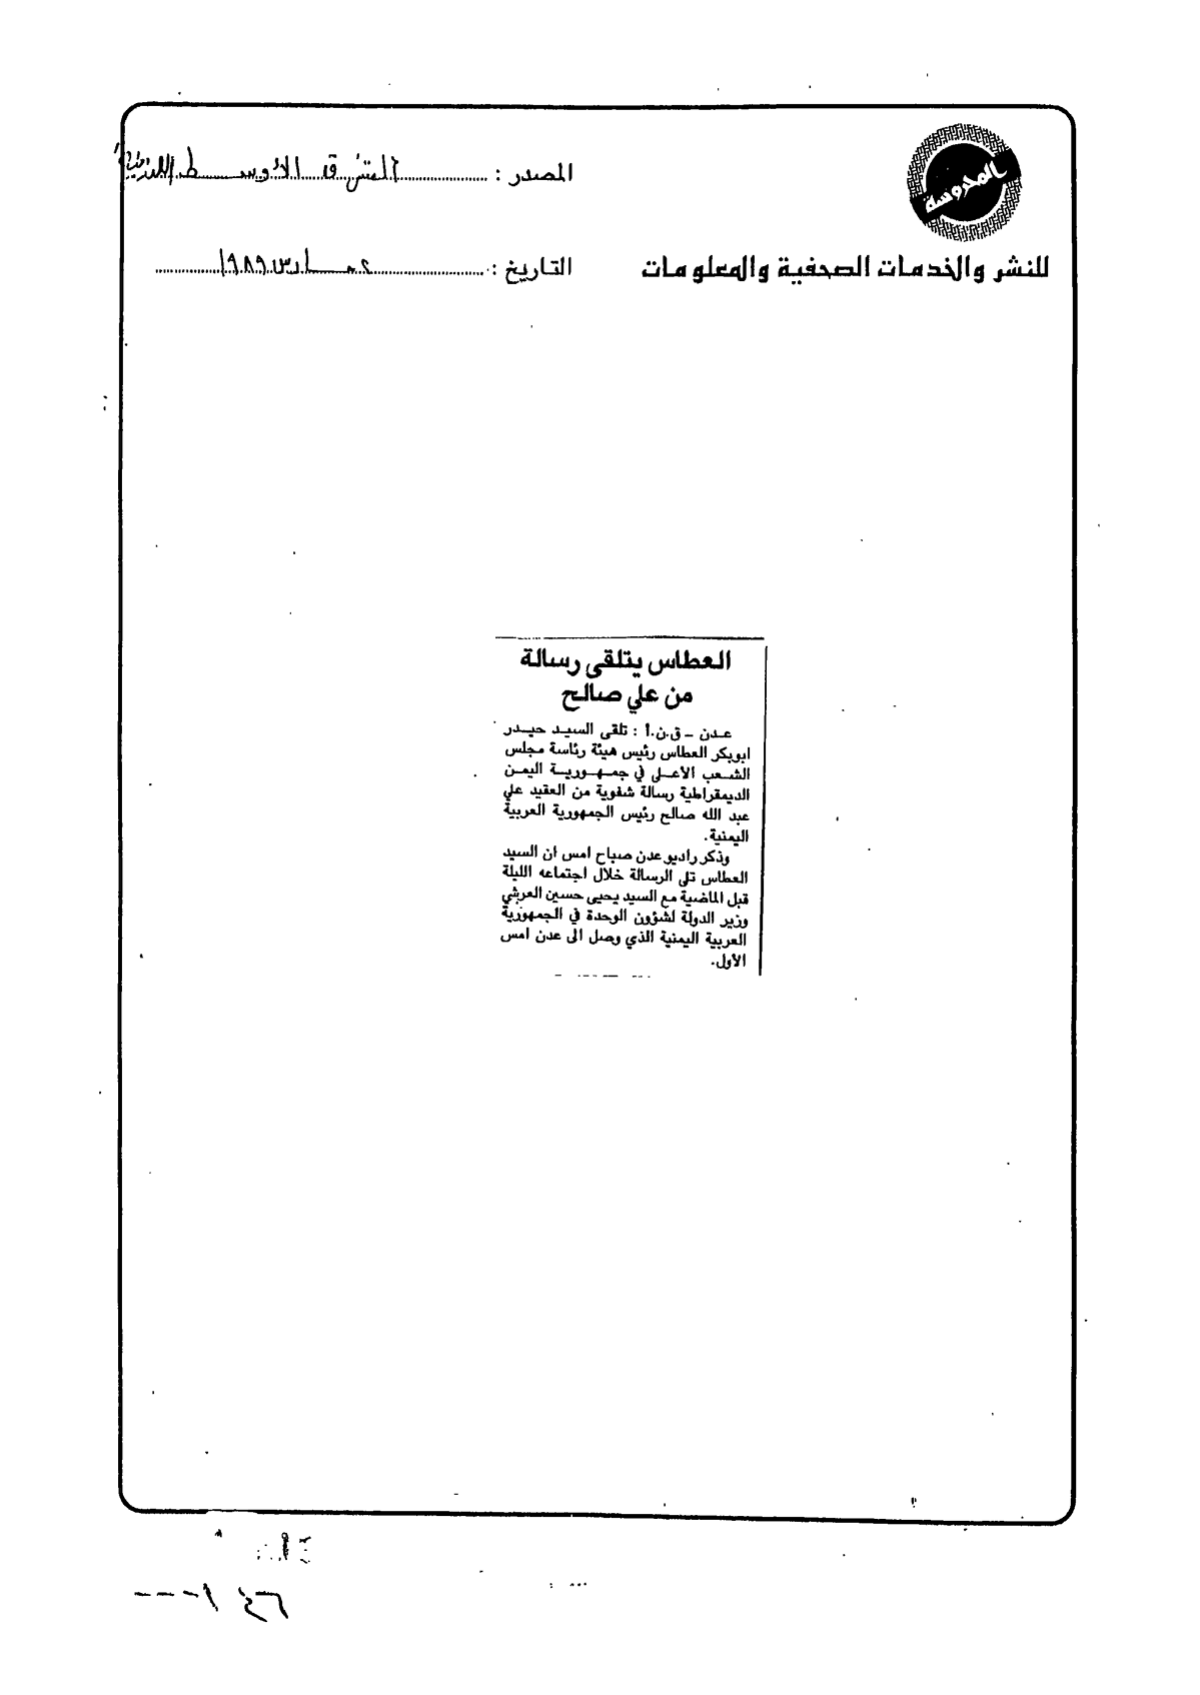 المحروسة
المصدر : الشرق الأوسط اللندنية
للنشر والخدمات الصحفية والمعلومات
التاريخ : ٢ مارس ١٩٨٩
العطاس يتلقى رسالة
من علي صالح
عدن ـ ق.ن.أ : تلقى السيد حيدر
ابوبكر العطاس رئيس هيئة رئاسة مجلس
الشعب الاعلى في جمهورية اليمن
الديمقراطية رسالة شفوية من العقيد علي
عبد الله صالح رئيس الجمهورية العربية
اليمنية.
وذكر راديو عدن صباح امس ان السيد
العطاس تلى الرسالة خلال اجتماعه الليلة
قبل الماضية مع السيد يحيى حسين العرشي
وزير الدولة لشؤون الوحدة في الجمهورية
العربية اليمنية الذي وصل الى عدن امس
الأول.